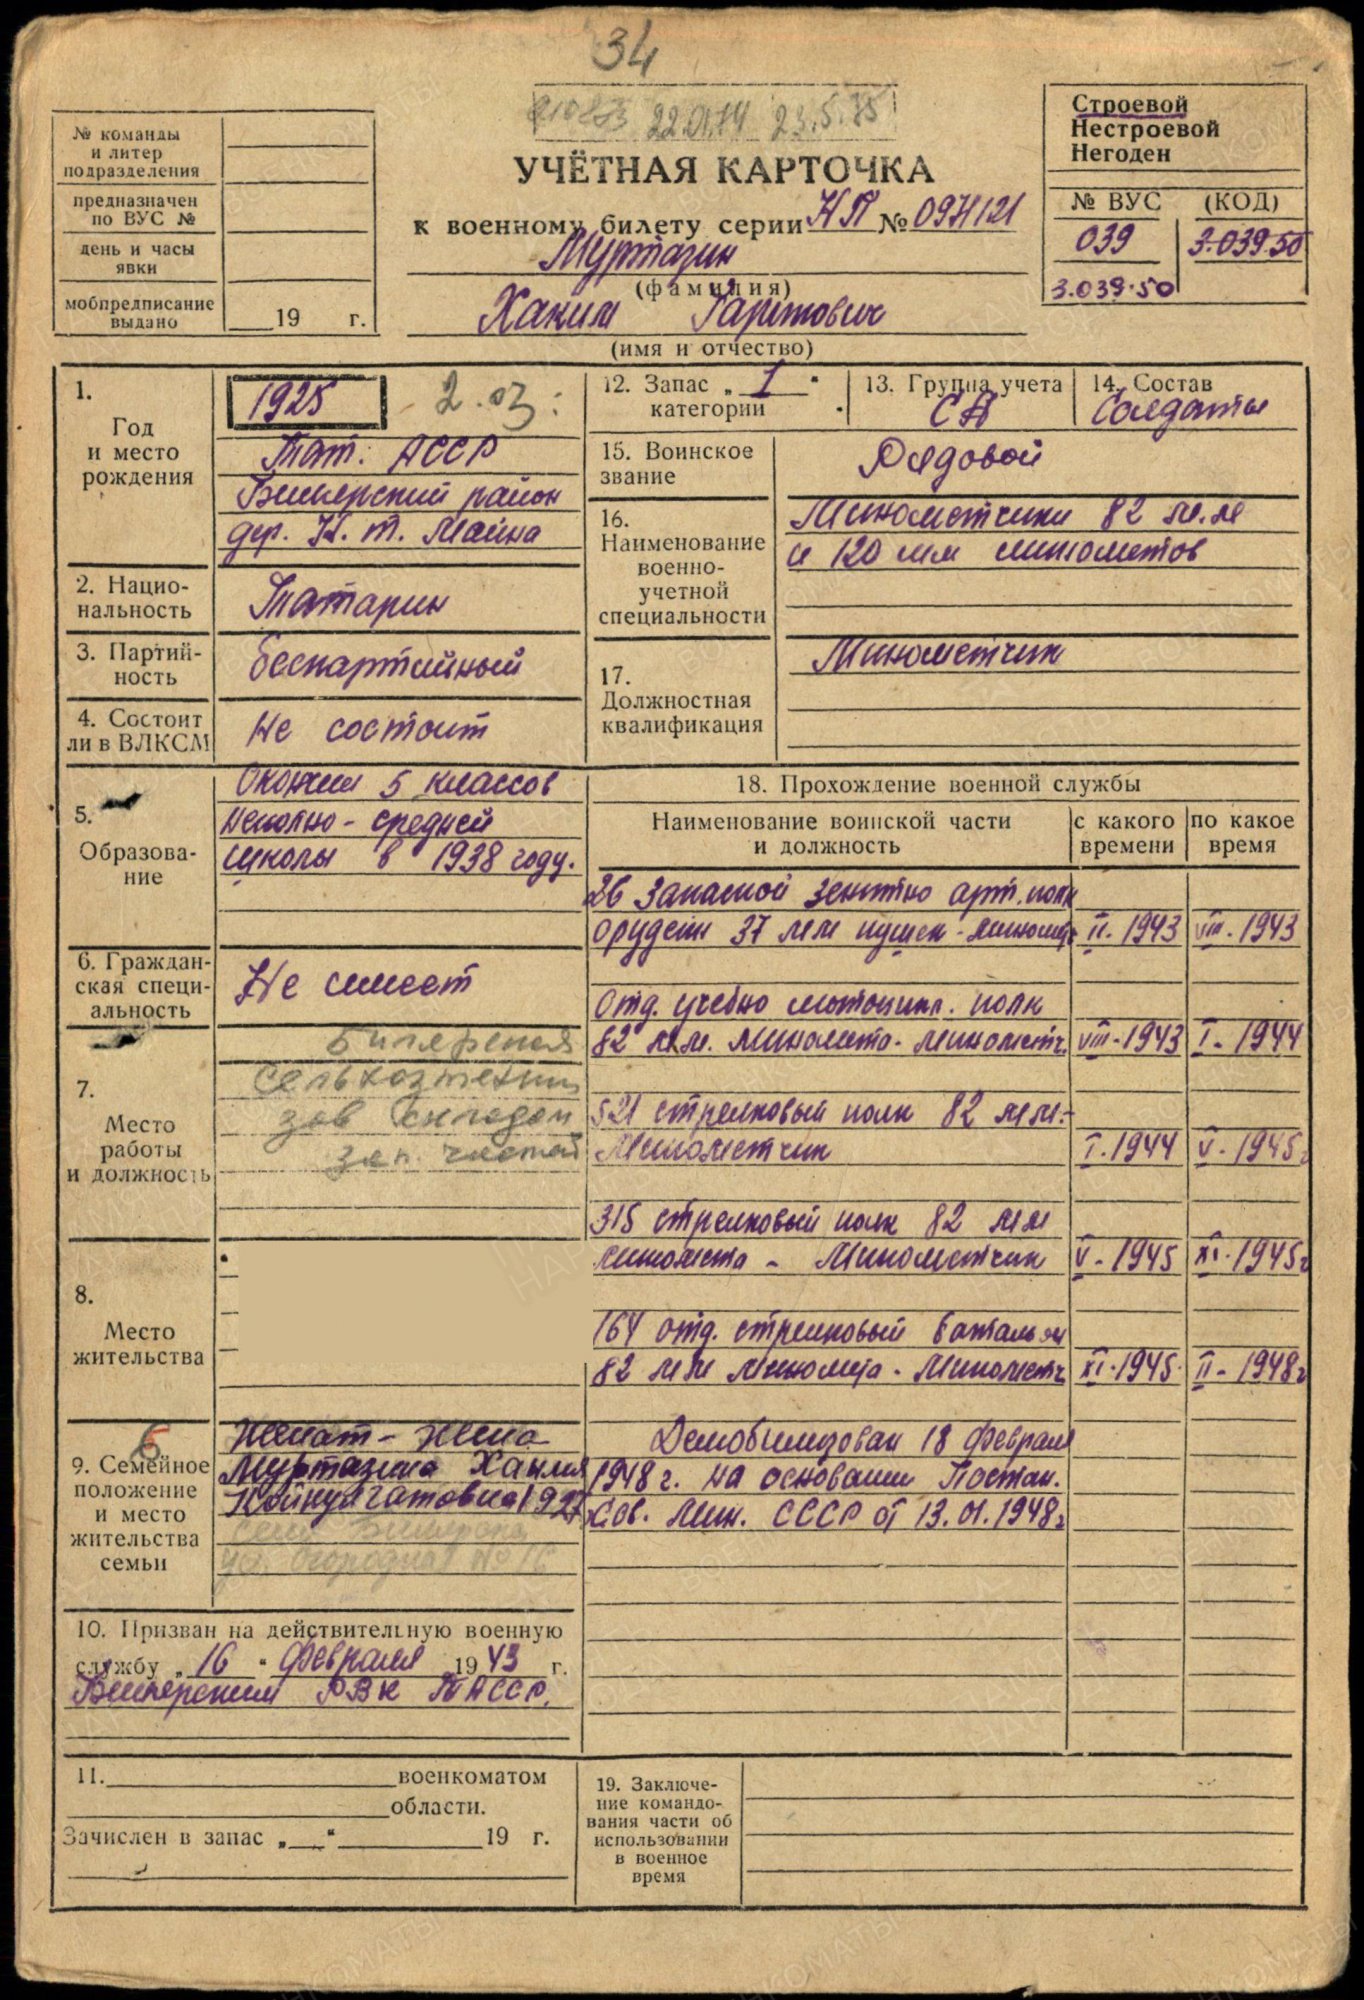 34
22.01.74 23.5.75
№ команды
и литер
подразделения
предназначен
по ВУС №
день и часы
явки
мобпредписание
выдано
19 г.
УЧЁТНАЯ КАРТОЧКА
к военному билету серии НП №
Муртазин
(фамилия)
Хаким Гарипович
(имя и отчество)
Строевой
Нестроевой
Негоден
№ ВУС (КОД)
039 3.039.50
3.039.50
1.
Год
и место
рождения
1925 2.03.
Тат. АССР
Билярский район
дер. Н. т. Майна
2. Нацио-
нальность
Татарин
3. Партий-
ность
беспартийный
4. Состоит
ли в ВЛКСМ
Не состоит
5.
Образова-
ние
Окончил 5 классов
неполно-средней
школы в 1938 году.
6. Граждан-
ская специ-
альность
Не имеет
7.
Место
работы
и должность
Билярская
сельхозтехни
зав складом
зап. частей
8.
Место
жительства
6
9. Семейное
положение
и место
жительства
семьи
Женат - жена
Муртазина
1927
село Билярск
ул. Огородная № 16
10. Призван на действительную военную
службу „16“ февраля 1943 г.
Билярским РВК ТАССР.
11. военкоматом
области.
Зачислен в запас „ “ 19 г.
12. Запас „1“
категории
13. Группа учета
СА
14. Состав
Солдаты
15. Воинское
звание
Рядовой
16.
Наименование
военно-
учетной
специальности
Минометчики 82 м.м
и 120 мм минометов
17.
Должностная
квалификация
Минометчик
18. Прохождение военной службы
Наименование воинской части
и должность
с какого
времени
по какое
время
26 Запасной зенитно арт. полк
орудейн 37 мм пушек - миномет II-1943 VIII-1943
Отд. учебно мотоцикл. полк
82 м.м. миномета - минометч. VIII-1943 I-1944
521 стрелковый полк 82 мм.-
Минометчик I.1944 V-1945г
315 стрелковый полк 82 мм
миномета - Минометчик V-1945 XI-1945г
164 отд. стрелковый батальон
82 мм миномета - Минометч XI-1945 II-1948г
Демобилизован 18 февраля
1948 г. на основании Постан.
Сов. Мин. СССР от 13.01.1948г
19. Заключе-
ние командо-
вания части об
использовании
в военное
время